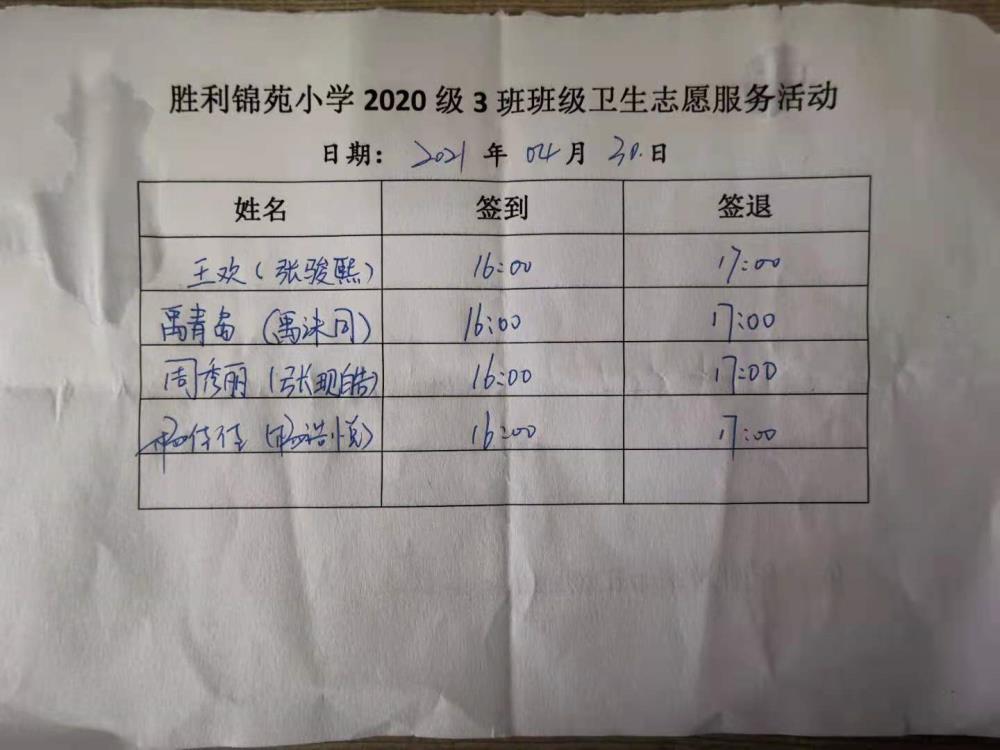 胜利锦苑小学 2020 级 3 班班级卫生志愿服务活动
日期： 2021 年 04 月 30. 日
姓名 签到 签退
王欢（张骏熙） 16:00 17:00
禹青岛（禹沫同） 16:00 17:00
周秀丽（张现皓） 16:00 17:00
佳佳 16:00 17:00